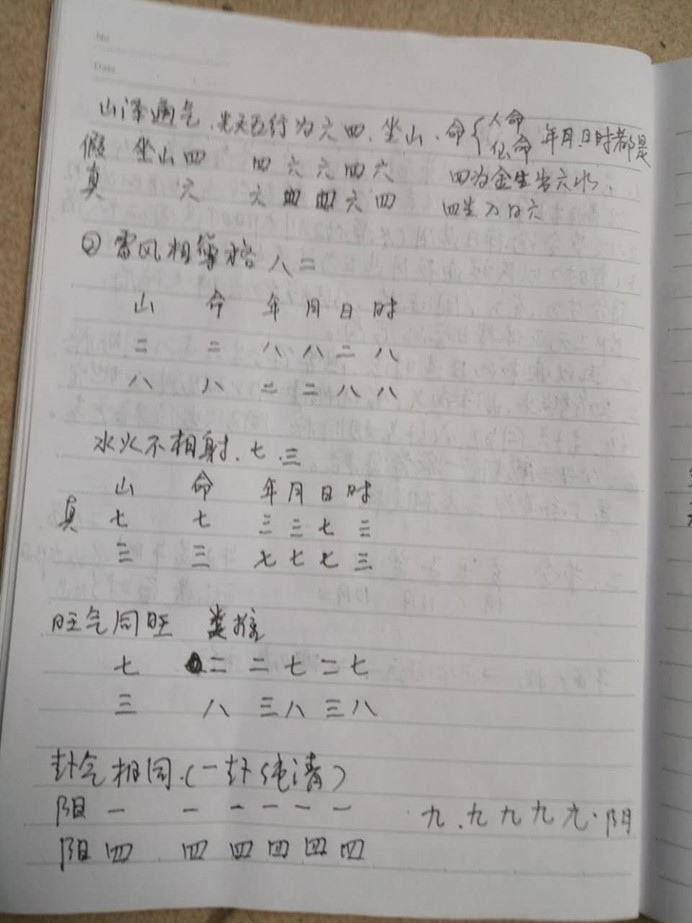 No
Date
山泽通气.先天五行为六四.坐山.命{人命 仙命 年月.日时都是
假 坐山四 四六六四六 四为金生出六水.
真 六 六四四六四 四生入为六
② 雷风相簿格 八二
山 命 年月日时
二 二 八八二八
八 八 二二八八
水火不相射.七.三
山 命 年月日时
真 七 七 三三七三
三 三 七七七三
旺气同旺 类推
七 二二七二七
三 八三八三八
卦气相同.(一卦纯清)
阳一 一一一一一 九.九九九九.阴
阳四 四四四四四